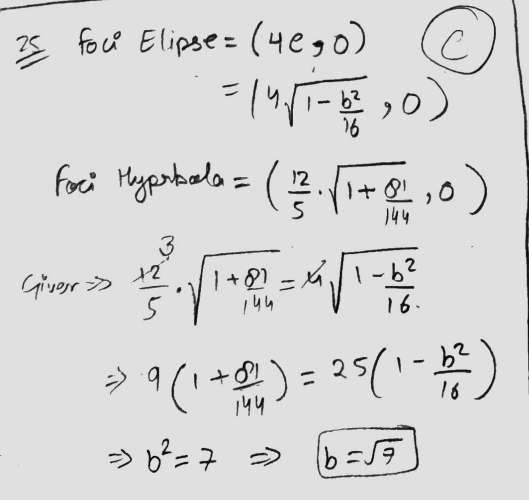 25 foci Elipse = (4e, 0) (C)
= (4√(1 - b²/16), 0)
foci Hyperbola = (12/5 · √(1 + 81/144), 0)
Given ⇒ 12/5 3 · √(1 + 81/144) = 4√(1 - b²/16).
⇒ 9(1 + 81/144) = 25(1 - b²/16)
⇒ b² = 7 ⇒ b = √7